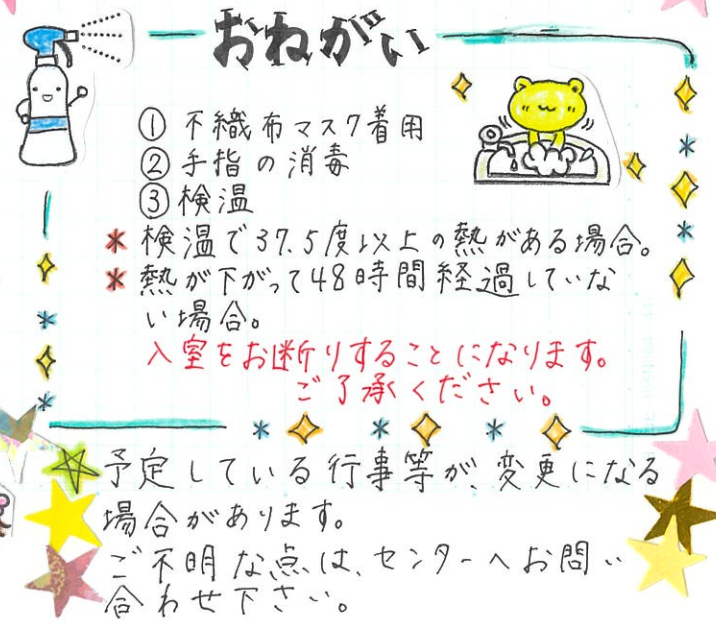 おねがい
① 不織布マスク着用
② 手指の消毒
③ 検温
* 検温で37.5度以上の熱がある場合。
* 熱が下がって48時間経過していな
い場合。
入室をお断りすることになります。
ご了承ください。
予定している行事等が、変更になる
場合があります。
ご不明な点は、センターへお問い
合わせ下さい。